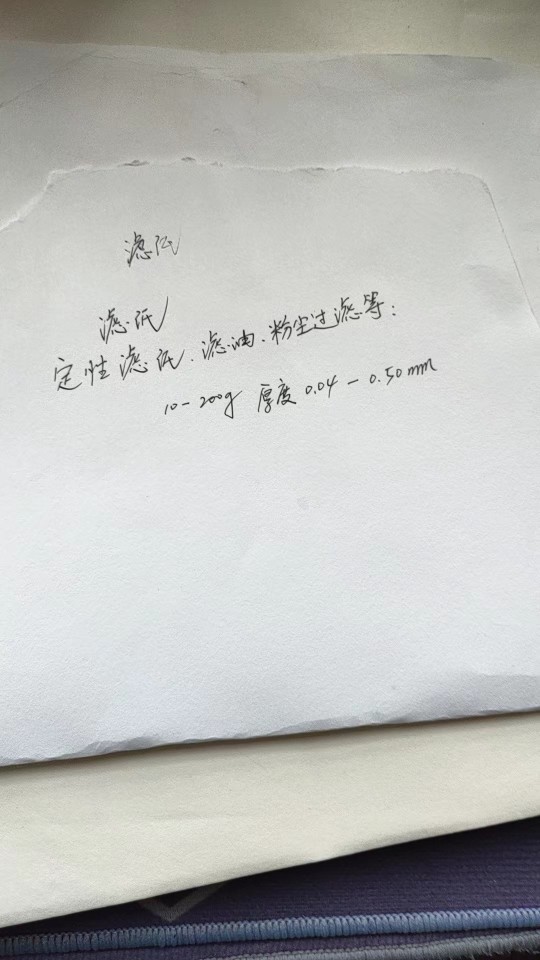 滤纸
滤纸
定性滤纸、滤油、粉尘过滤等：
10-200g 厚度 0.04-0.50mm